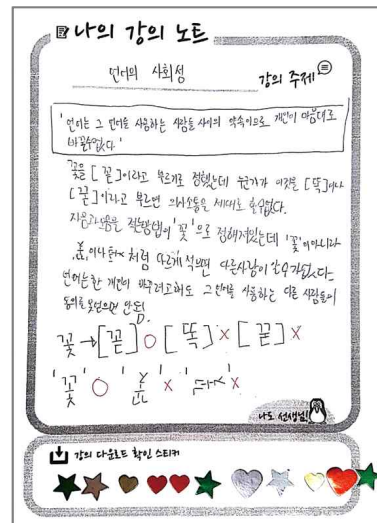 나의 강의 노트
언어의 사회성 강의 주제
'언어는 그 언어를 사용하는 사람들 사이의 약속이므로 개인이 마음대로
바꿀수없다'
꽃을 [꼳]이라고 부르기로 정했는데 누군가가 이것을 [똑]이나
[꾿]이라고 부르면 의사소통을 제대로 할수없다.
자음과모음을 적는방법이 '꽃'으로 정해져있는데 '꽃'이아니라
이나 처럼 다르게 적으면 다른사람이 알수가없다.
언어는한 개인이 바꾸려고해도 그언어를 사용하는 다른 사람들의
동의를 못얻으면 안돼!
꽃→[꼳]O [똑]X [꾿]X
'꽃'O X X
나도 선생님!
강의 다운로드 확인 스티커